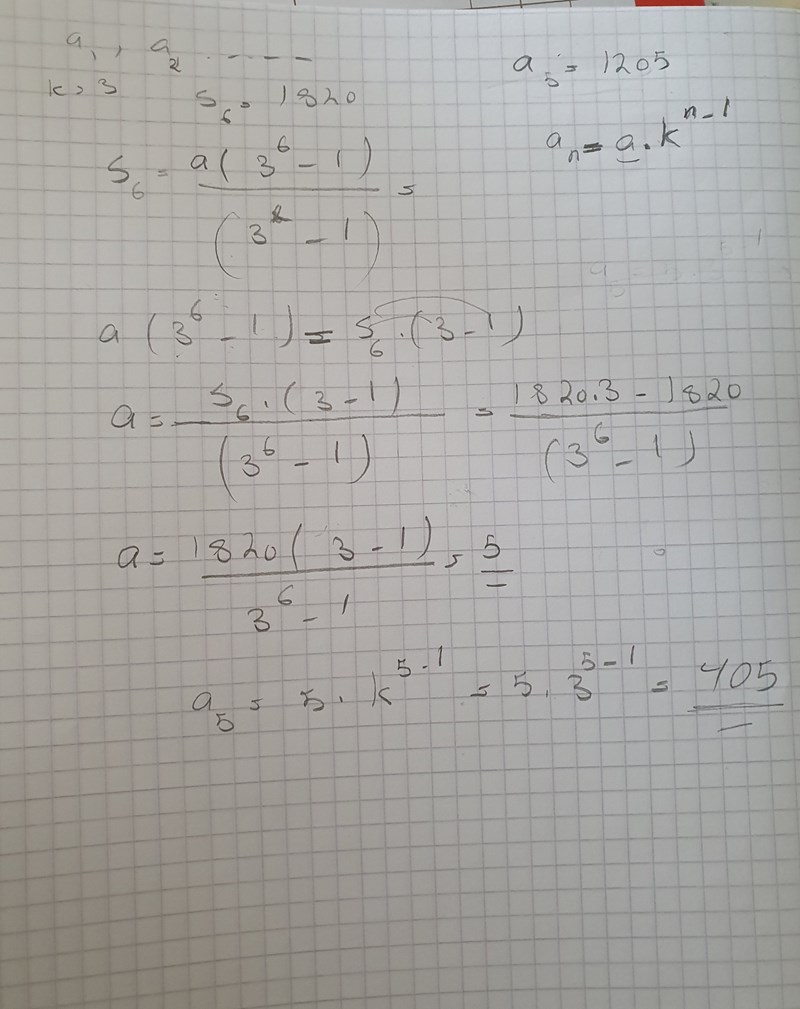 a₁, a₂ -----
a₅ = 1205
k = 3 S₆ = 1820
aₙ = a · kⁿ⁻¹
S₆ = a(3⁶ - 1) / (3 - 1) =
a (3⁶ - 1) = S₆ · (3 - 1)
a = S₆ · (3 - 1) / (3⁶ - 1) = 1820.3 - 1820 / (3⁶ - 1)
a = 1820(3 - 1) / 3⁶ - 1 = 5
a₅ = 5 · k⁵⁻¹ = 5 · 3⁵⁻¹ = 405